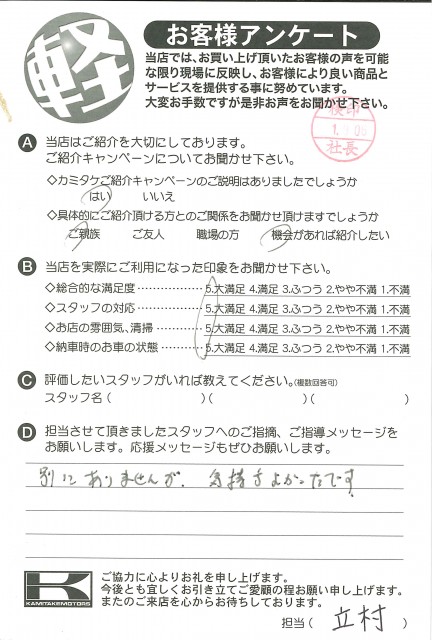 軽
お客様アンケート
当店では、お買い上げ頂いたお客様の声を可能
な限り現場に反映し、お客様により良い商品と
サービスを提供する事に努めています。
大変お手数ですが是非お声をお聞かせ下さい。
検印
社長
A 当店はご紹介を大切にしております。
ご紹介キャンペーンについてお聞かせ下さい。
◇カミタケご紹介キャンペーンのご説明はありましたでしょうか
はい いいえ
◇具体的にご紹介頂ける方とのご関係をお聞かせ頂けますでしょうか
ご親族 ご友人 職場の方 機会があれば紹介したい
B 当店を実際にご利用になった印象をお聞かせ下さい。
◇総合的な満足度 5.大満足 4.満足 3.ふつう 2.やや不満 1.不満
◇スタッフの対応 5.大満足 4.満足 3.ふつう 2.やや不満 1.不満
◇お店の雰囲気、清掃 5.大満足 4.満足 3.ふつう 2.やや不満 1.不満
◇納車時のお車の状態 5.大満足 4.満足 3.ふつう 2.やや不満 1.不満
C 評価したいスタッフがいれば教えてください。(複数回答可)
スタッフ名( )( )( )
D 担当させて頂きましたスタッフへのご指摘、ご指導メッセージを
お願いします。応援メッセージもぜひお願いします。
別にありませんが、気持ちよかったです
K
KAMITAKEMOTORS
ご協力に心よりお礼を申し上げます。
今後とも宜しくお引き立てご愛顧の程お願い申し上げます。
またのご来店を心からお待ちしております。
担当( 立村 )